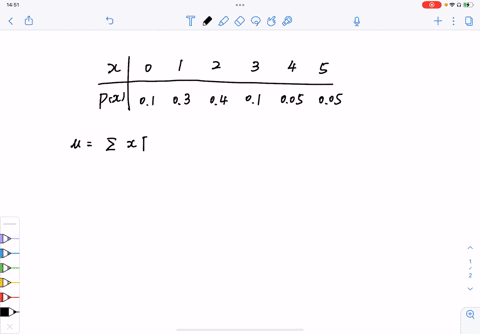 14:51
x 0 1 2 3 4 5
P(x) 0.1 0.3 0.4 0.1 0.05 0.05
μ = Σ x
1
2